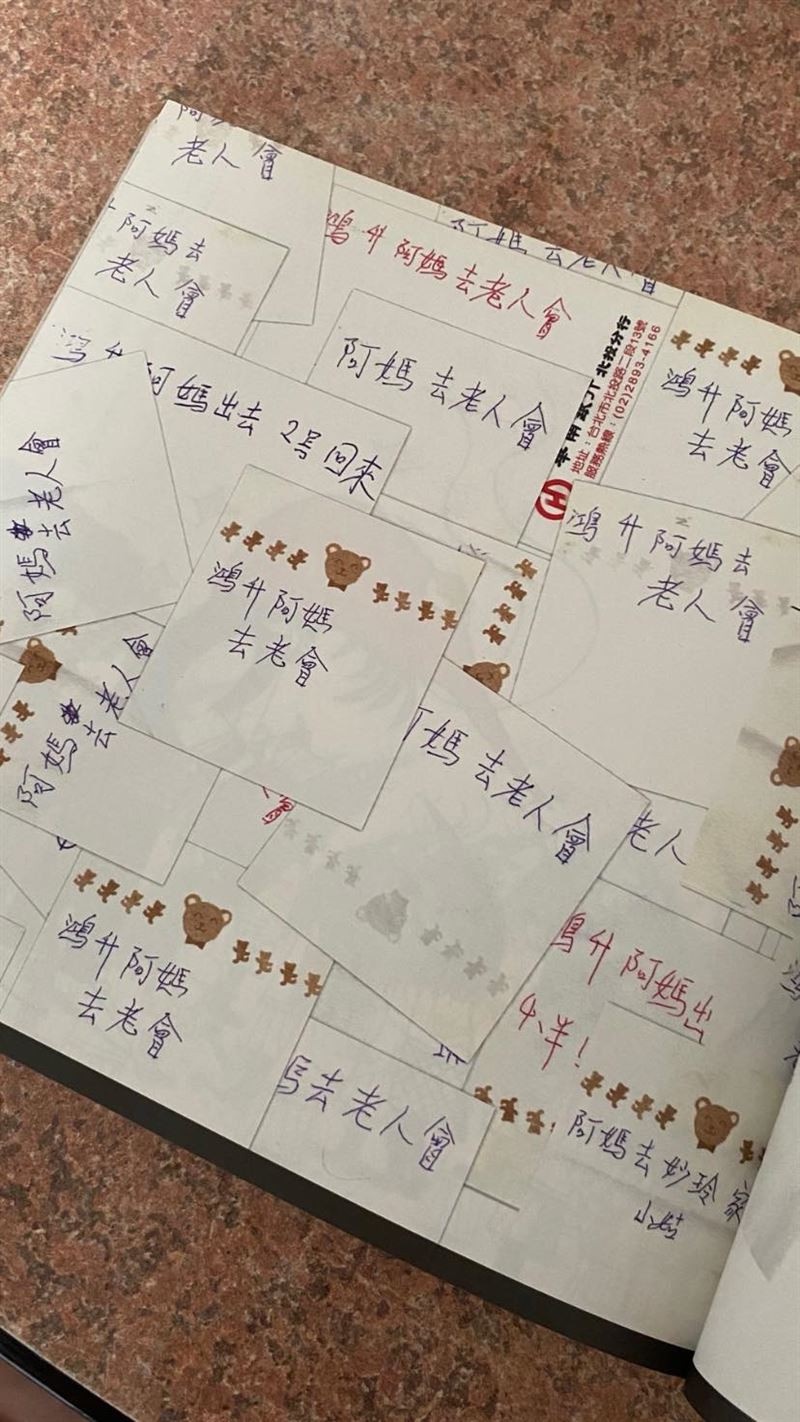 老人會
阿媽去
老人會
阿媽去老人會
升阿媽去老人會
阿媽去老人會
北投分行
地址：台北市北投路二段13號
服務熱線：(02)2893-4166
鴻升阿媽
去老會
阿媽出去 2号回來
阿媽去老人會
鴻升阿媽去
老人會
鴻升阿媽
去老會
阿媽去老人會
媽去老人會
老人
升阿媽出
半！
鴻升阿媽
去老會
去老人會
阿媽去妙玲家
小姑